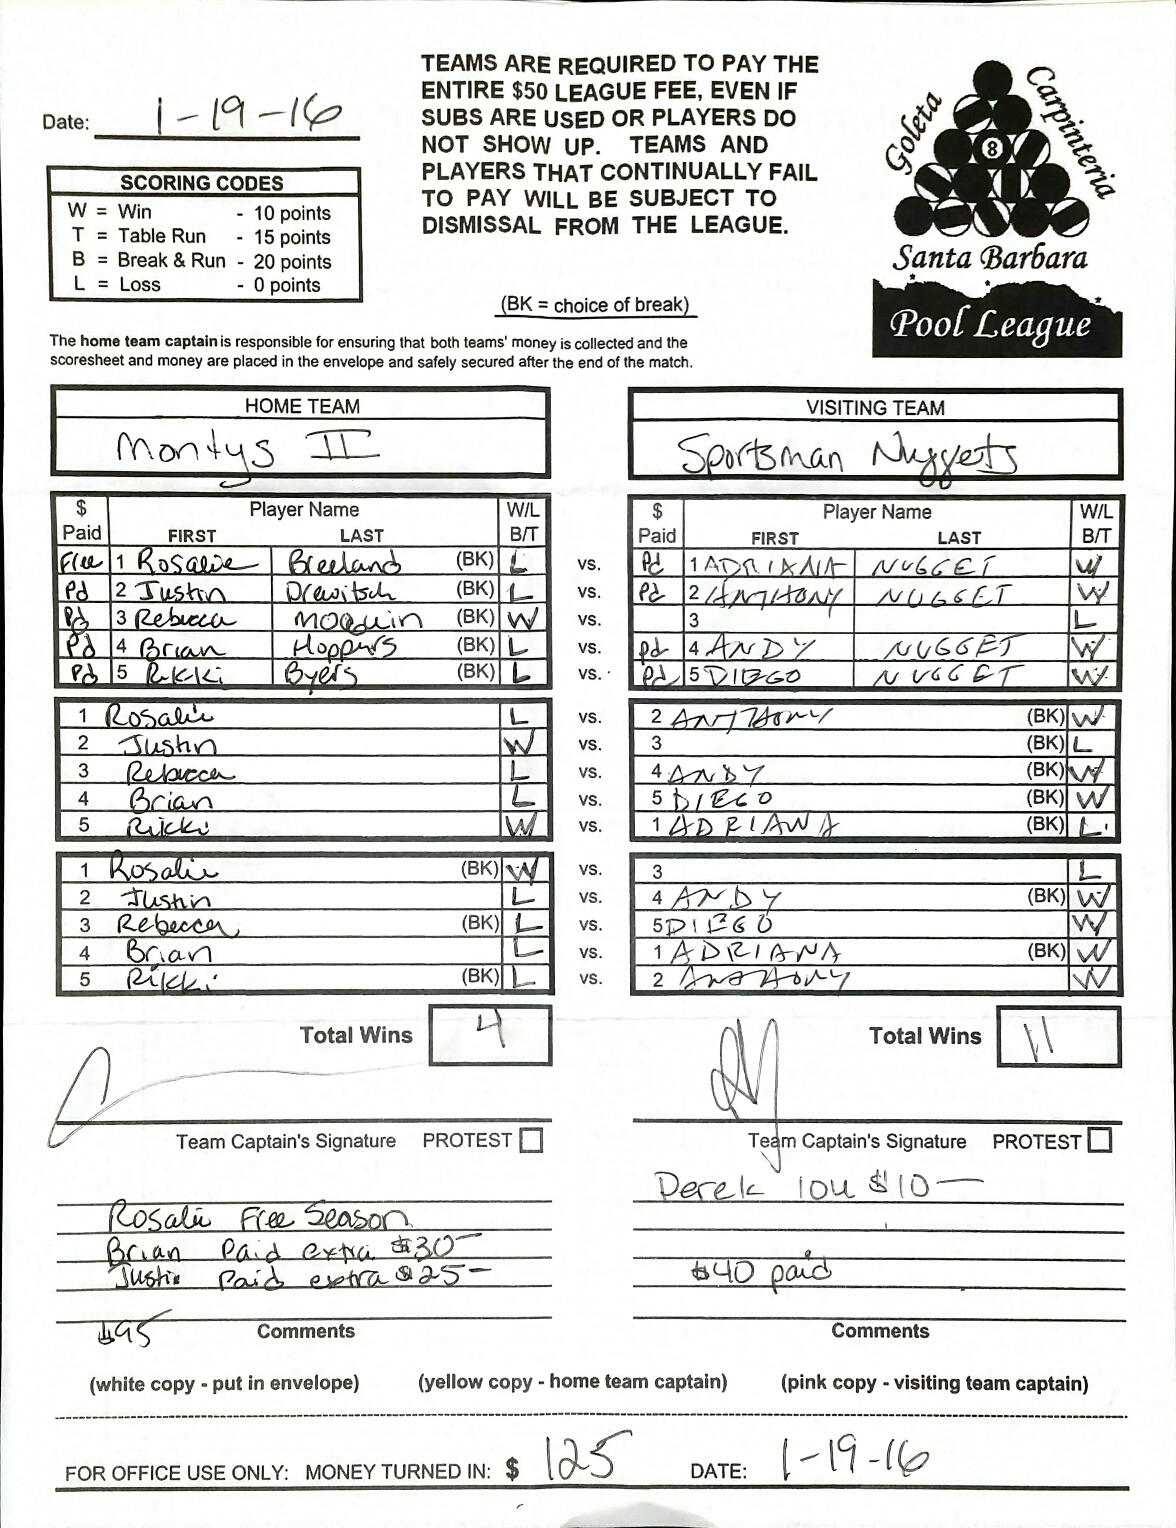 Date: 1-19-16
TEAMS ARE REQUIRED TO PAY THE
ENTIRE $50 LEAGUE FEE, EVEN IF
SUBS ARE USED OR PLAYERS DO
NOT SHOW UP. TEAMS AND
PLAYERS THAT CONTINUALLY FAIL
TO PAY WILL BE SUBJECT TO
DISMISSAL FROM THE LEAGUE.
Goleta
Carpinteria
8
Santa Barbara
Pool League
SCORING CODES
W = Win - 10 points
T = Table Run - 15 points
B = Break & Run - 20 points
L = Loss - 0 points
(BK = choice of break)
The home team captain is responsible for ensuring that both teams' money is collected and the
scoresheet and money are placed in the envelope and safely secured after the end of the match.
HOME TEAM VISITING TEAM
Montys II Sportsman Nuggets
$ Player Name W/L $ Player Name W/L
Paid FIRST LAST B/T Paid FIRST LAST B/T
Free 1 Rosalie Breeland (BK) L vs. Pd 1 ADRIANA NUGGET W
Pd 2 Justin Drewitsch (BK) L vs. Pd 2 ANTHONY NUGGET W
Pd 3 Rebecca (BK) W vs. 3 L
Pd 4 Brian Hoppers (BK) L vs. Pd 4 ANDY NUGGET W
Pd 5 Rikki Byers (BK) L vs. Pd 5 DIEGO NUGGET W
1 Rosalie L vs. 2 ANTHONY (BK) W
2 Justin W vs. 3 (BK) L
3 Rebecca L vs. 4 ANDY (BK) W
4 Brian L vs. 5 DIEGO (BK) W
5 Rikki W vs. 1 ADRIANA (BK) L
1 Rosalie (BK) W vs. 3 L
2 Justin L vs. 4 ANDY (BK) W
3 Rebecca (BK) L vs. 5 DIEGO W
4 Brian L vs. 1 ADRIANA (BK) W
5 Rikki (BK) L vs. 2 ANTHONY W
Total Wins 4 Total Wins 11
Team Captain's Signature PROTEST Team Captain's Signature PROTEST
Derek IOU $10—
Rosalie Free Season
Brian Paid extra $30—
Justin Paid extra $25— $40 paid
$95 Comments Comments
(white copy - put in envelope) (yellow copy - home team captain) (pink copy - visiting team captain)
FOR OFFICE USE ONLY: MONEY TURNED IN: $ 125 DATE: 1-19-16